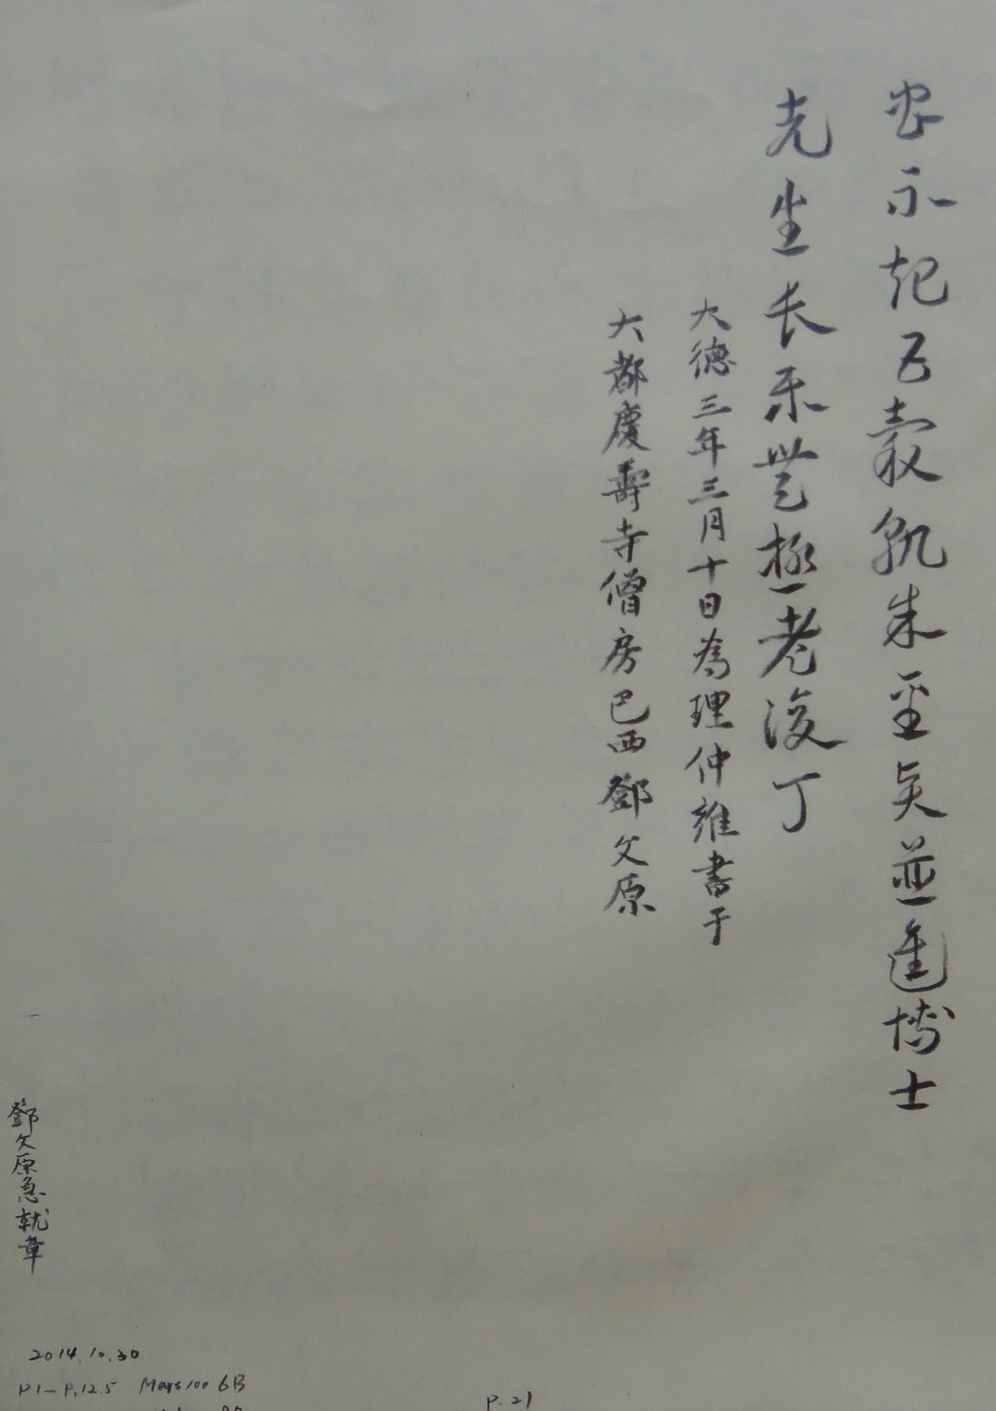 虫不起五穀孰朱至矣並進博士
先生長樂無極老復丁
大德三年三月十日為理仲雍書于
大都慶壽寺僧房巴西鄧文原
鄧文原急就章
2014.10.30
P1-P.125 Mars100 6B
P.21